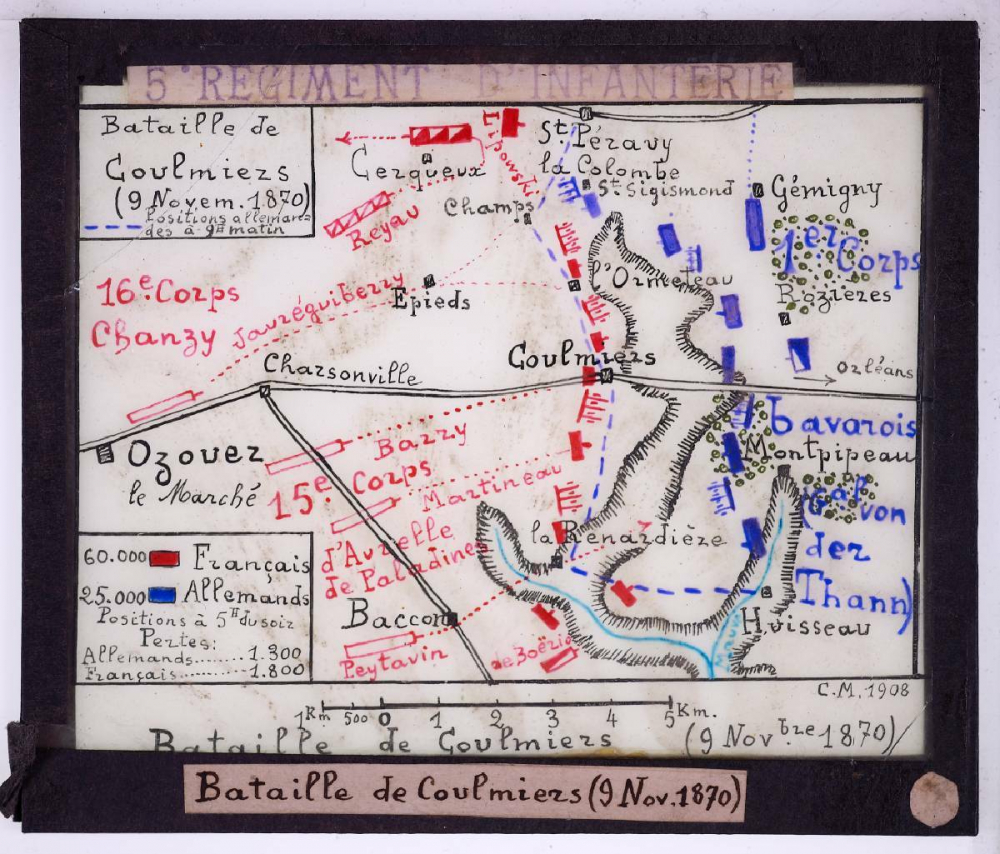 5ᵉ REGIMENT D'INFANTERIE
Bataille de
Coulmiers
(9 Novem. 1870)
Positions alleman-
des à 9ᴴ matin
Lipowski
St. Péravy
la Colombe
St. Sigismond
Gémigny
Cerqueux
Reyau
Champs
1er Corps
l'Ormeteau
Rozières
16e Corps
Chanzy
Jauréguiberry
Epieds
Coulmiers
Orléans
Charsonville
Ozouer
le Marché
Barry
15e Corps
Martineau
d'Aurelle
de Paladines
bavarois
Montpipeau
(Gᵃˡ von
der
Thann)
la Renardière
60.000 Français
25.000 Allemands
Positions à 5ᴴ du soir
Pertes:
Allemands........1.300
Français............1.800
Baccon
Peytavin
Huisseau
Mauve
C.M. 1908
1Km 500 0 1 2 3 4 5 Km.
Bataille de Coulmiers (9 Novbre 1870)
Bataille de Coulmiers (9 Nov. 1870)